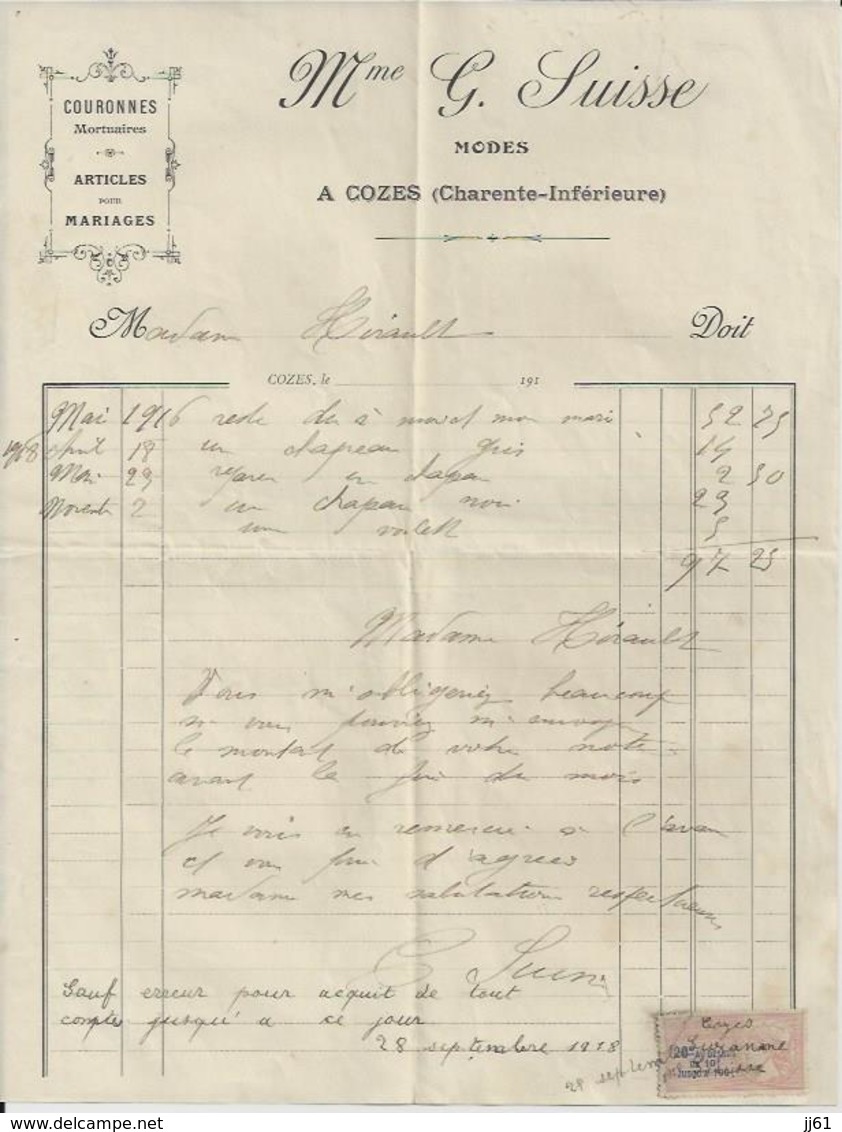 COURONNES
Mortuaires
ARTICLES
POUR
MARIAGES
Mme G. Suisse
MODES
A COZES (Charente-Inférieure)
Madame Hérault Doit
COZES, le 191
Mai 1916 reste du à mon mari 52 75
1918 Avril 18 un chapeau gris 14
Mai 23 un chapeau 2 50
2 un chapeau noir 23
une 5
97 25
Madame Hérault
Vous m'obligeriez beaucoup
si vous pouviez m'envoyer
le montant de votre note
avant la fin du mois
Je vous en remercie à l'avance
et vous prie d'agréer
madame mes salutations respectueuses
G Suisse
Sauf erreur pour acquit de tout
comptes jusqu'a ce jour
28 septembre 1918
Cozes
Suzanne
Suisse
28 septembre
jj61